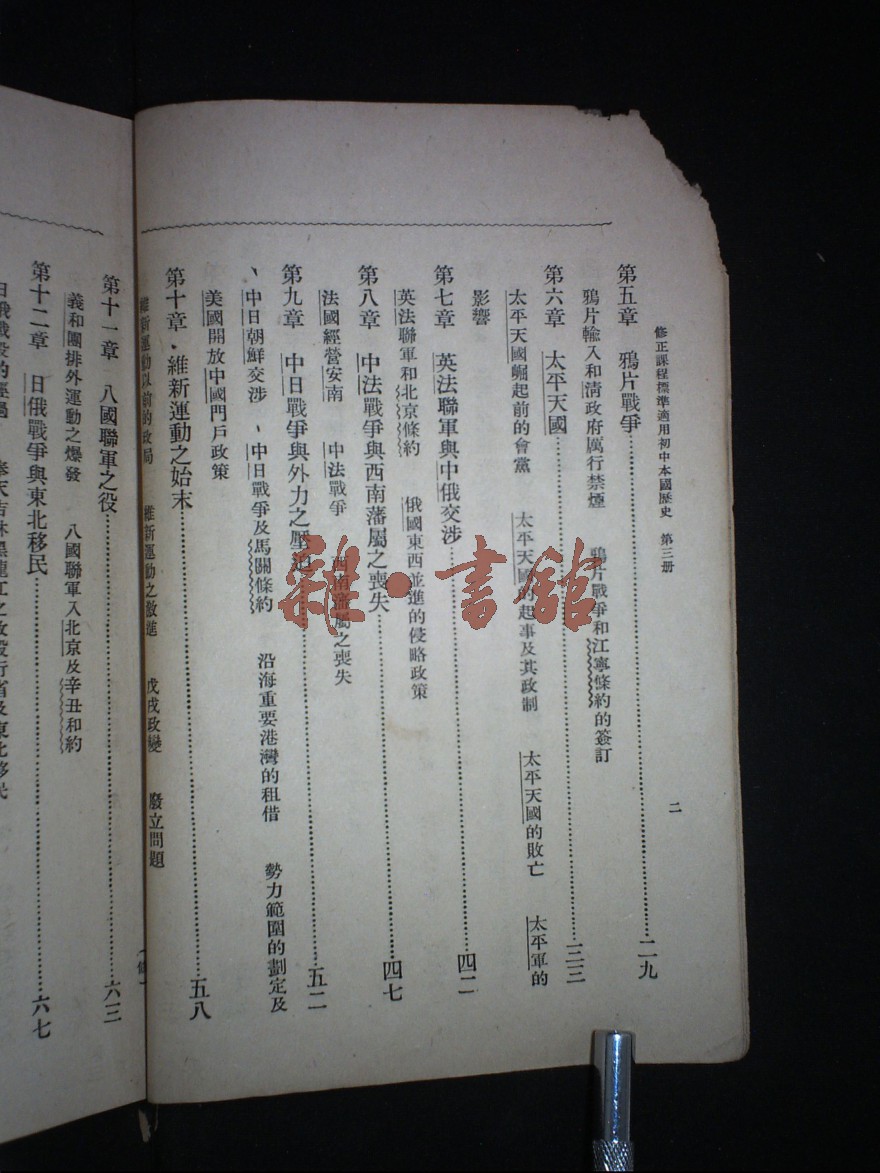 修正課程標準適用初中本國歷史　第三册
二
第五章　鴉片戰爭……二九
鴉片輸入和淸政府厲行禁煙　鴉片戰爭和江寧條約的簽訂
第六章　太平天國……三三
太平天國崛起前的會黨　太平天國的起事及其政制　太平天國的敗亡　太平軍的
影響
第七章　英法聯軍與中俄交涉……四二
英法聯軍和北京條約　俄國東西並進的侵略政策
第八章　中法戰爭與西南藩屬之喪失……四七
法國經營安南　中法戰爭　西南藩屬之喪失
第九章　中日戰爭與外力之壓迫……五二
中日朝鮮交涉　中日戰爭及馬關條約　沿海重要港灣的租借　勢力範圍的劃定及
美國開放中國門戶政策
第十章　維新運動之始末……五八
維新運動以前的政局　維新運動之激進　戊戌政變　廢立問題
第十一章　八國聯軍之役……六三
義和團排外運動之爆發　八國聯軍入北京及辛丑和約
第十二章　日俄戰爭與東北移民……六七
雜·書館